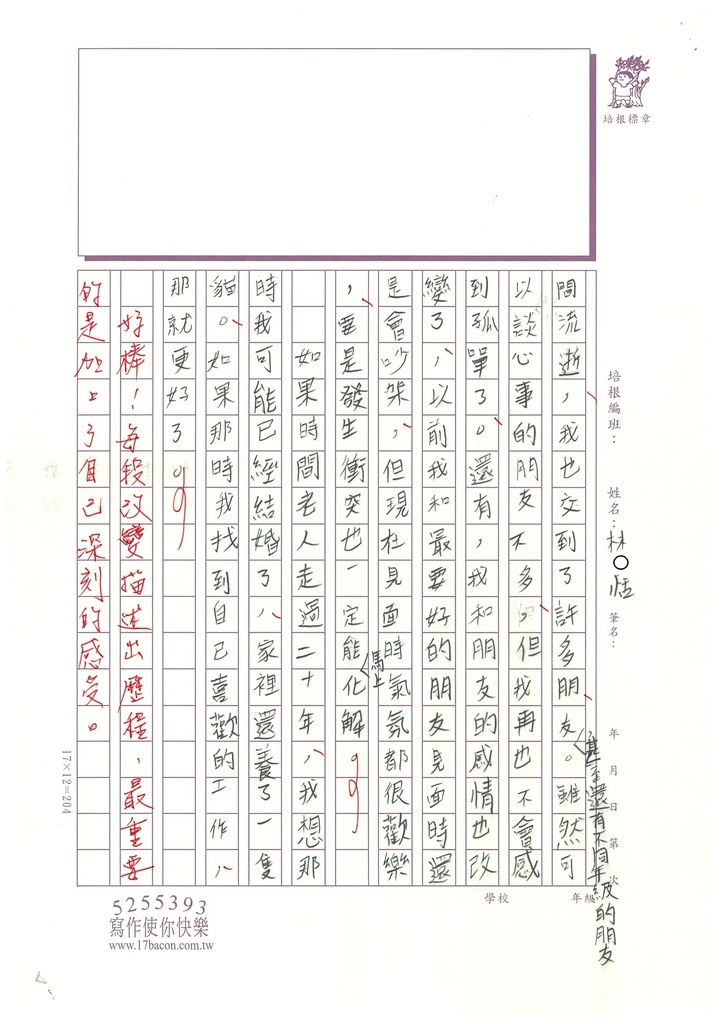 培根標章
培根編班：
姓名：林○恬
筆名：
年 月 日 第 次
學校
年級
間流逝，我也交到了許多朋友。雖然可
甚至還有不同年級的朋友
以談心事的朋友不多，但我再也不會感
到孤單了。還有，我和朋友的感情也改
變了，以前我和最要好的朋友見面時還
是會吵架，但現在見面時氣氛都很歡樂
，要是發生衝突也一定能化解。
馬上
如果時間老人走過二十年，我想那
時我可能已經結婚了，家裡還養了一隻
貓。如果那時我找到自己喜歡的工作，
那就更好了。
好棒！每段改變描述出歷程，最重要
的是加上了自己深刻的感受。
17×12=204
5255393
寫作使你快樂
www.17bacon.com.tw